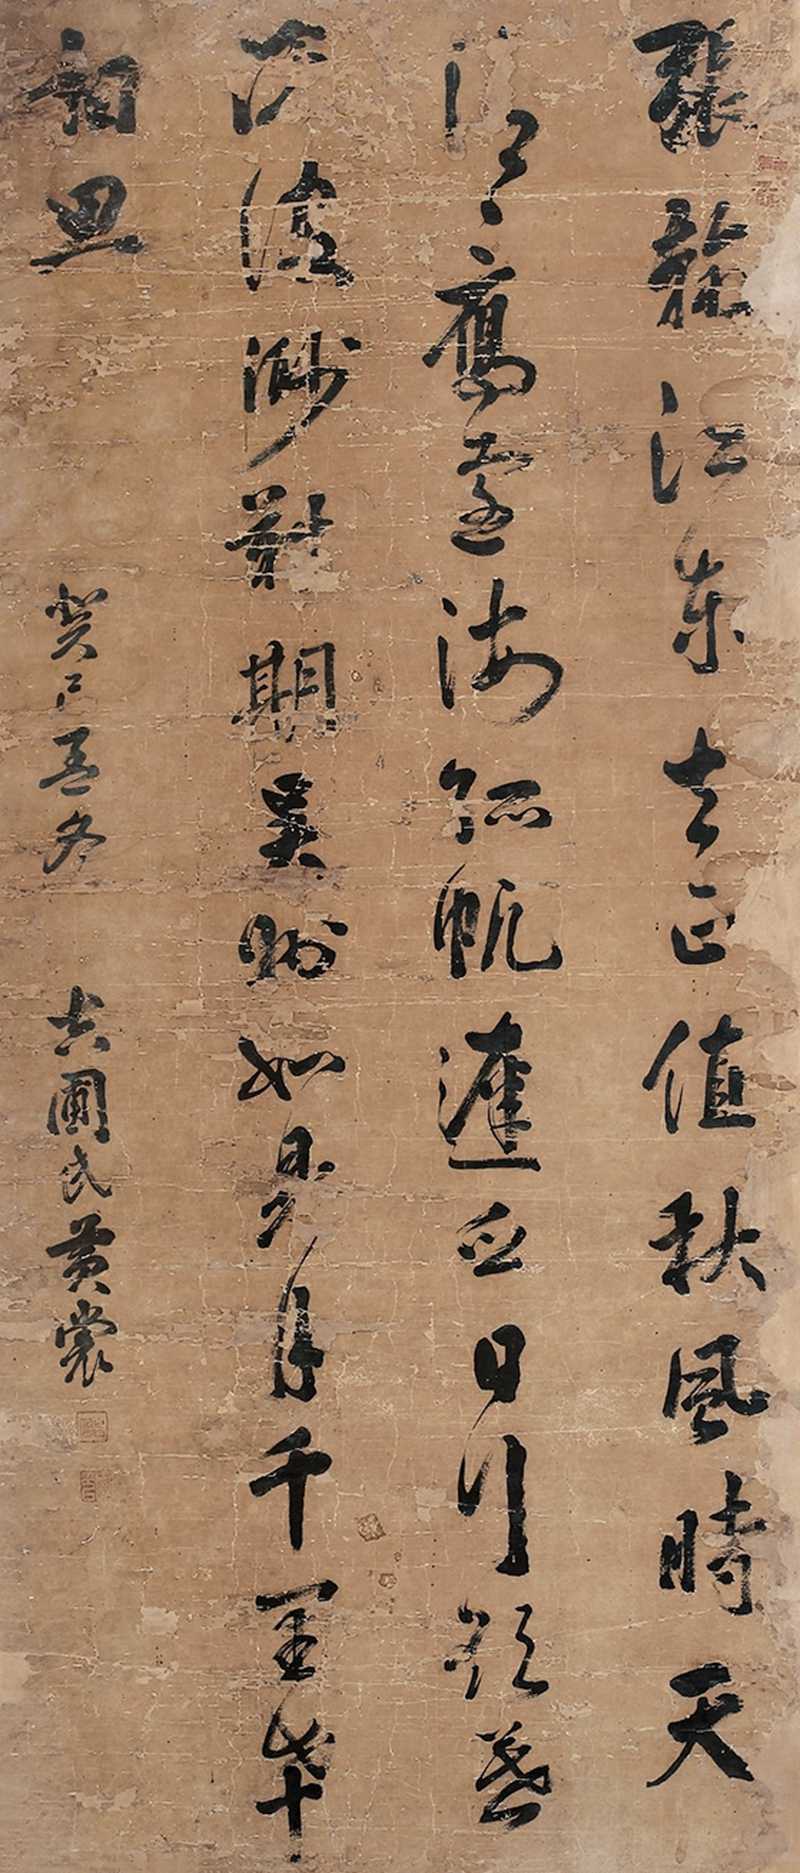 張翰江東去正值秋風時天
清一鴈遠海孤帆遲白日行欲暮
滄波渺難期吳洲如見月千里幸
相思
癸巳孟冬
圃氏黃裳